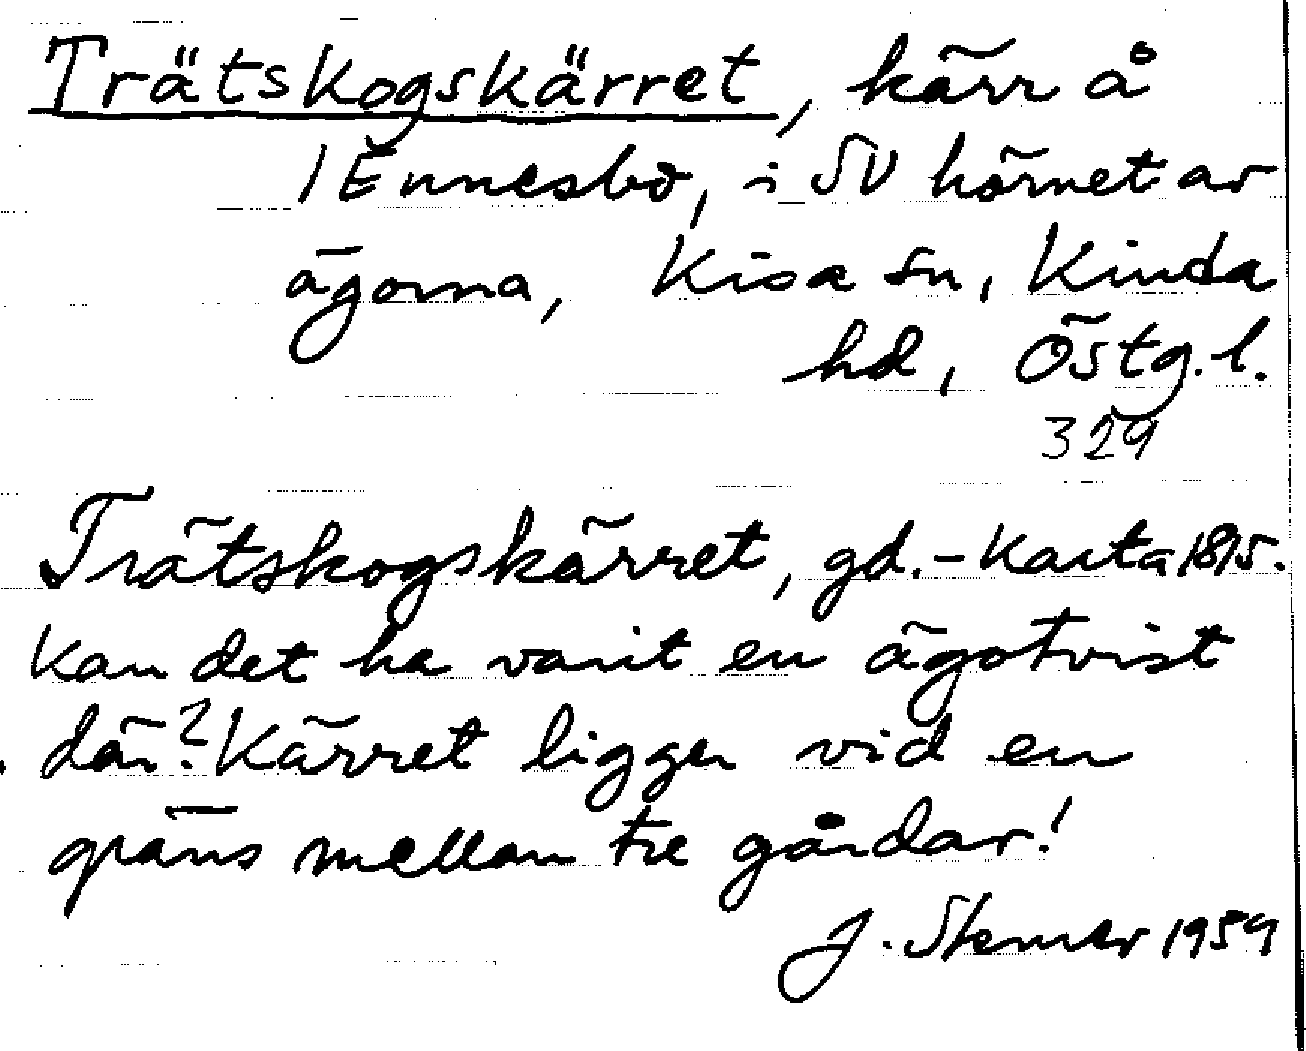 Trätskogskärret, kärr å
1 Ennesbo, i SV hörnet av
ägorna, Kisa sn, Kinda
hd, Östg.l.
329
Trätskogskärret, gd.-Karta 1815.
Kan det ha varit en ägotvist
där? Kärret ligger vid en
gräns mellan tre gårdar!
J. 1959